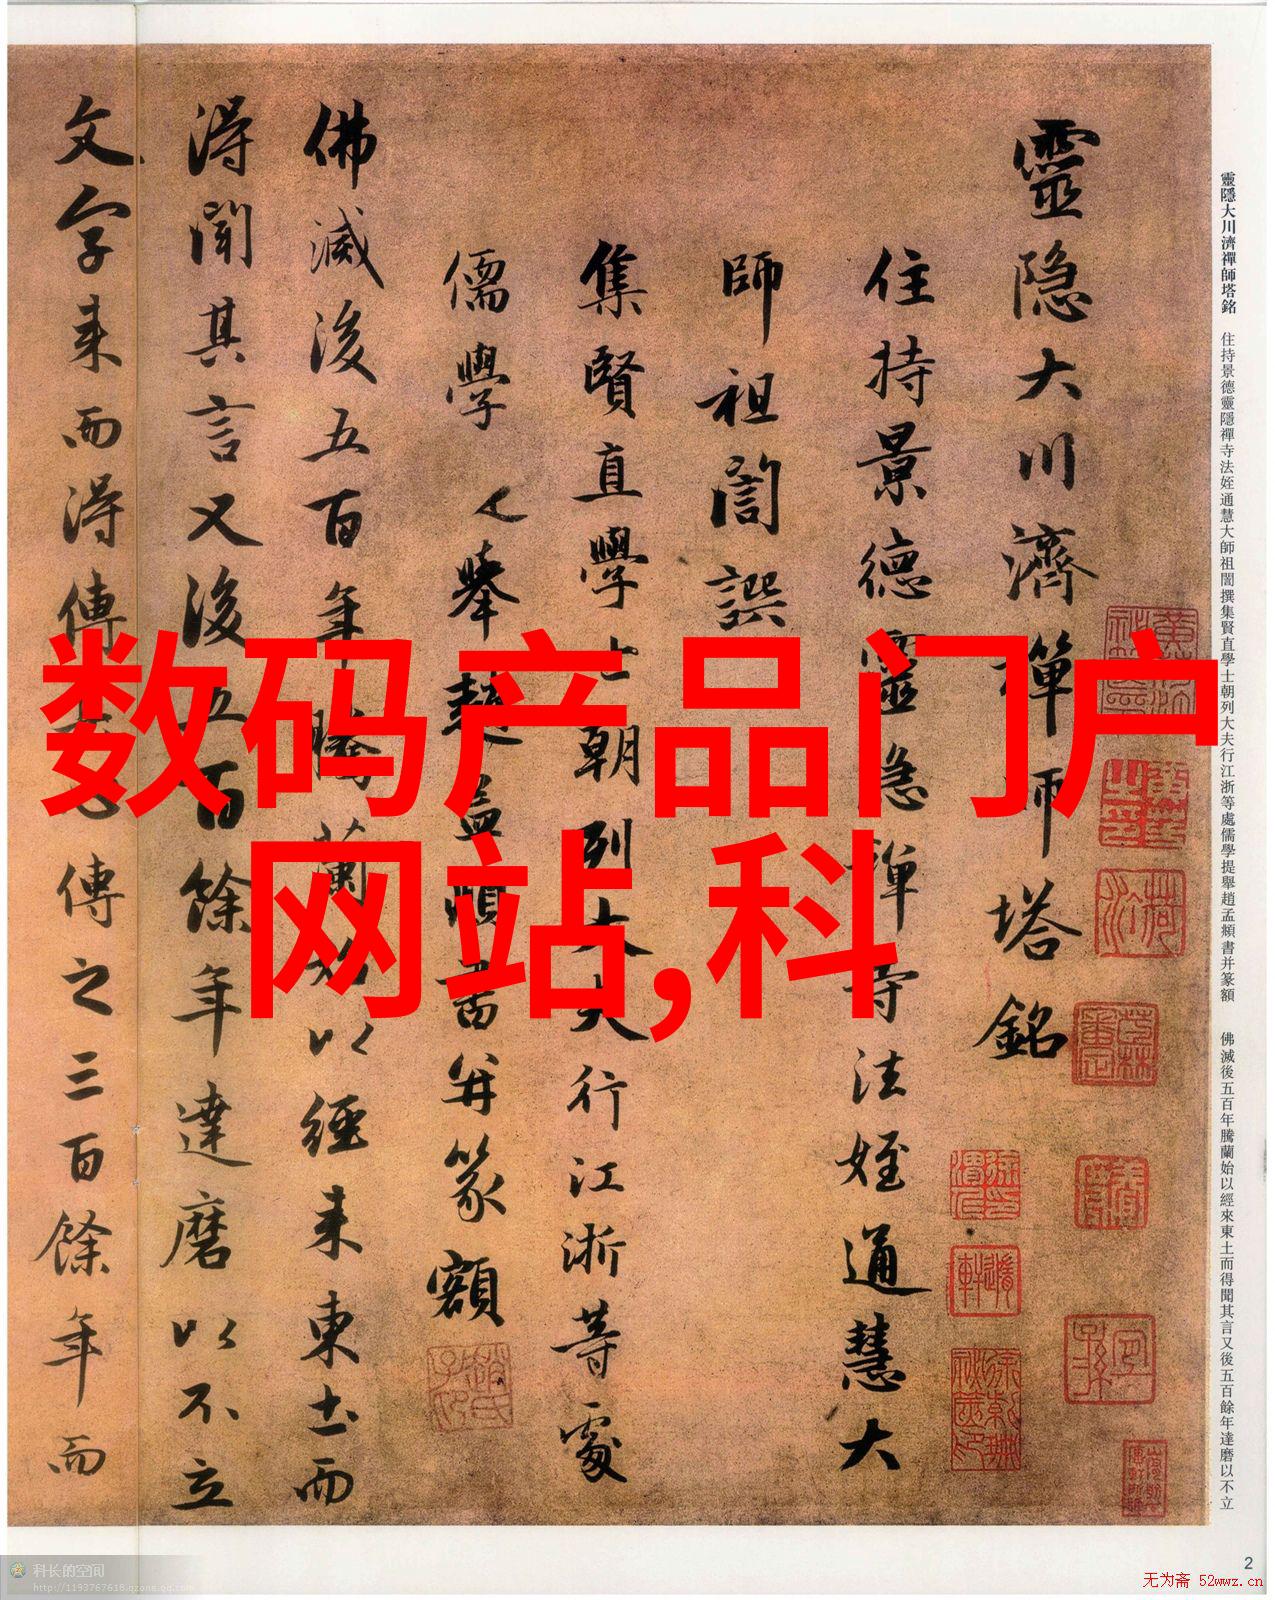 靈隱大川濟禪師塔銘
住持景德靈隱禪寺法姪通慧大
師祖誾譔
集賢直學士朝列大夫行江浙等處
儒學 舉趙孟頫書并篆額
佛滅後五百年騰蘭始以經来東土而
得聞其言又後五百餘年達磨以不立
文字来而得傳 傳之三百餘年而
靈隱大川濟禪師塔銘 住持景德靈隱禪寺法姪通慧大師祖誾撰集賢直學士朝列大夫行江浙等處儒學提舉趙孟頫書并篆額 佛滅後五百年騰蘭始以經來東土而得聞其言又後五百餘年達磨以不立
数码产品门户
网站,科
科长的空间
http://1193767618.qzone.qq.com
2
无为斋 52wwz.cn